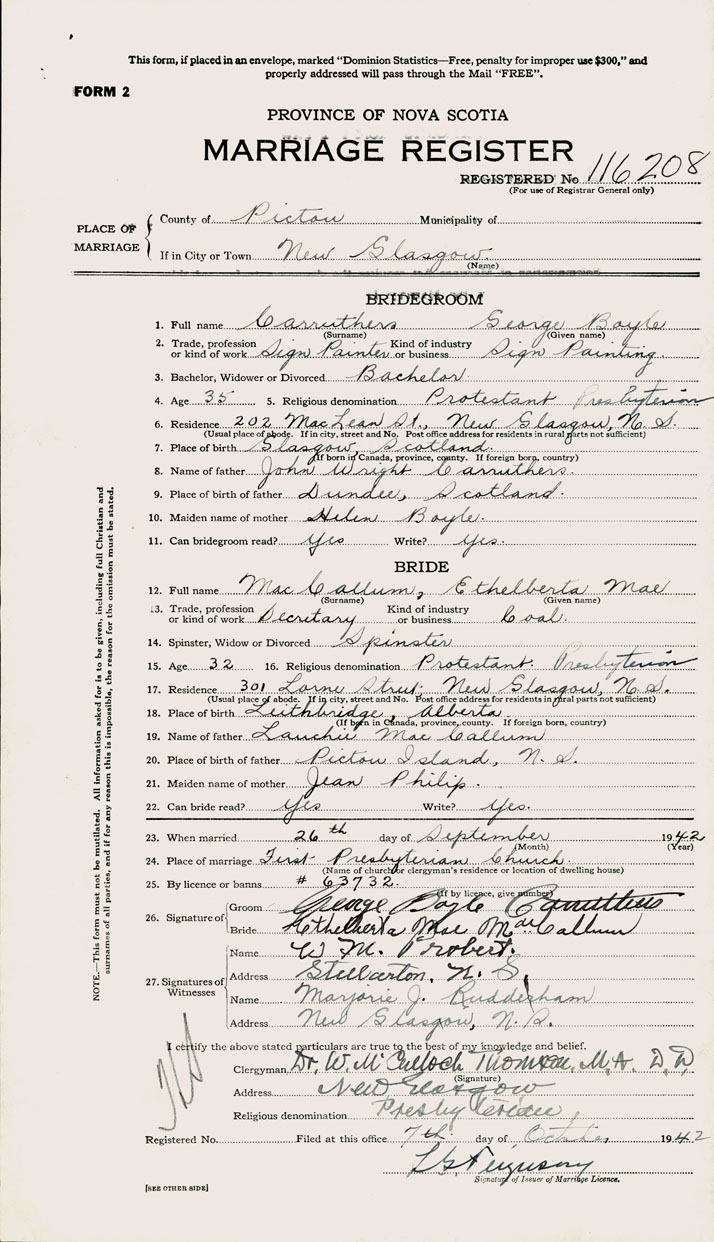 This form, if placed in an envelope, marked "Dominion Statistics—Free, penalty for improper use $300," and
properly addressed will pass through the Mail "FREE".
FORM 2
PROVINCE OF NOVA SCOTIA
MARRIAGE REGISTER
REGISTERED No. 116208
(For use of Registrar General only)
PLACE OF MARRIAGE
County of Pictou Municipality of
If in City or Town New Glasgow.
(Name)
BRIDEGROOM
1. Full name Carruthers George Boyle
(Surname) (Given name)
2. Trade, profession or kind of work Sign Painter Kind of industry or business Sign Painting.
3. Bachelor, Widower or Divorced Bachelor.
4. Age 35 5. Religious denomination Protestant Presbyterian
6. Residence 202 MacLean St., New Glasgow, N. S.
(Usual place of abode. If in city, street and No. Post office address for residents in rural parts not sufficient)
7. Place of birth Glasgow, Scotland.
(If born in Canada, province, county. If foreign born, country)
8. Name of father John Wright Carruthers.
9. Place of birth of father Dundee, Scotland.
10. Maiden name of mother Helen Boyle.
11. Can bridegroom read? Yes Write? Yes.
BRIDE
12. Full name MacCallum, Ethelberta Mae
(Surname) (Given name)
13. Trade, profession or kind of work Secretary Kind of industry or business Coal.
14. Spinster, Widow or Divorced Spinster
15. Age 32 16. Religious denomination Protestant. Presbyterian
17. Residence 301 Lorne Street, New Glasgow, N. S.
(Usual place of abode. If in city, street and No. Post office address for residents in rural parts not sufficient)
18. Place of birth Lethbridge, Alberta
(If born in Canada, province, county. If foreign born, country)
19. Name of father Lauchie MacCallum
20. Place of birth of father Pictou Island, N. S.
21. Maiden name of mother Jean Philip.
22. Can bride read? Yes Write? Yes.
23. When married 26th day of September 1942
(Month) (Year)
24. Place of marriage First Presbyterian Church.
(Name of church or clergyman's residence or location of dwelling house)
25. By licence or banns # 63732.
(If by licence, give number)
26. Signature of
Groom George Boyle Carruthers
Bride Ethelberta Mae MacCallum
27. Signatures of Witnesses
Name W. M. Probert.
Address Stellarton, N. S.
Name Marjorie J. Rudderham
Address New Glasgow, N.S.
I certify the above stated particulars are true to the best of my knowledge and belief.
Clergyman Dr. W. McCulloch Thomson, M.A. D.D
(Signature)
Address New Glasgow
Religious denomination Presbyterian,
Registered No. Filed at this office 7th day of October 1942
L G Ferguson
Signature of Issuer of Marriage Licence.
[SEE OTHER SIDE]
NOTE.—This form must not be mutilated. All information asked for is to be given, including full Christian and
surnames of all parties, and if for any reason this is impossible, the reason for the omission must be stated.